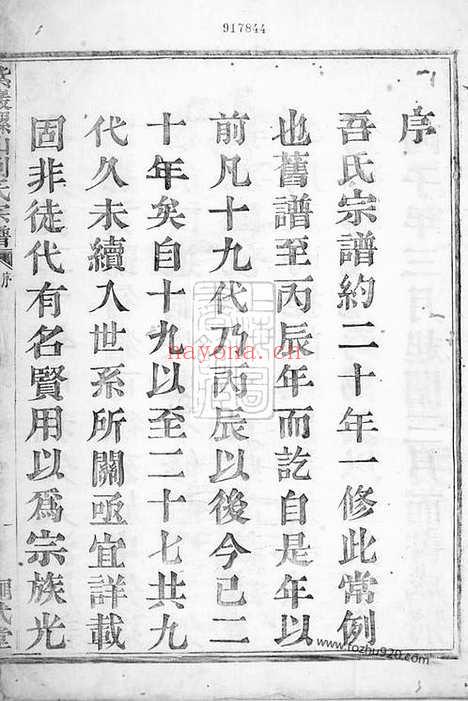 917844
序
吾氏宗譜約二十年一修此常例
也舊譜至丙辰年而訖自是年以
前凡十九代乃丙辰以後今已二
十年矣自十九以至二十七共九
代久未續入世系所關亟宜詳載
固非徒代有名賢用以爲宗族光
氏宗譜
序
hayona.cn
www.fozhu920.com